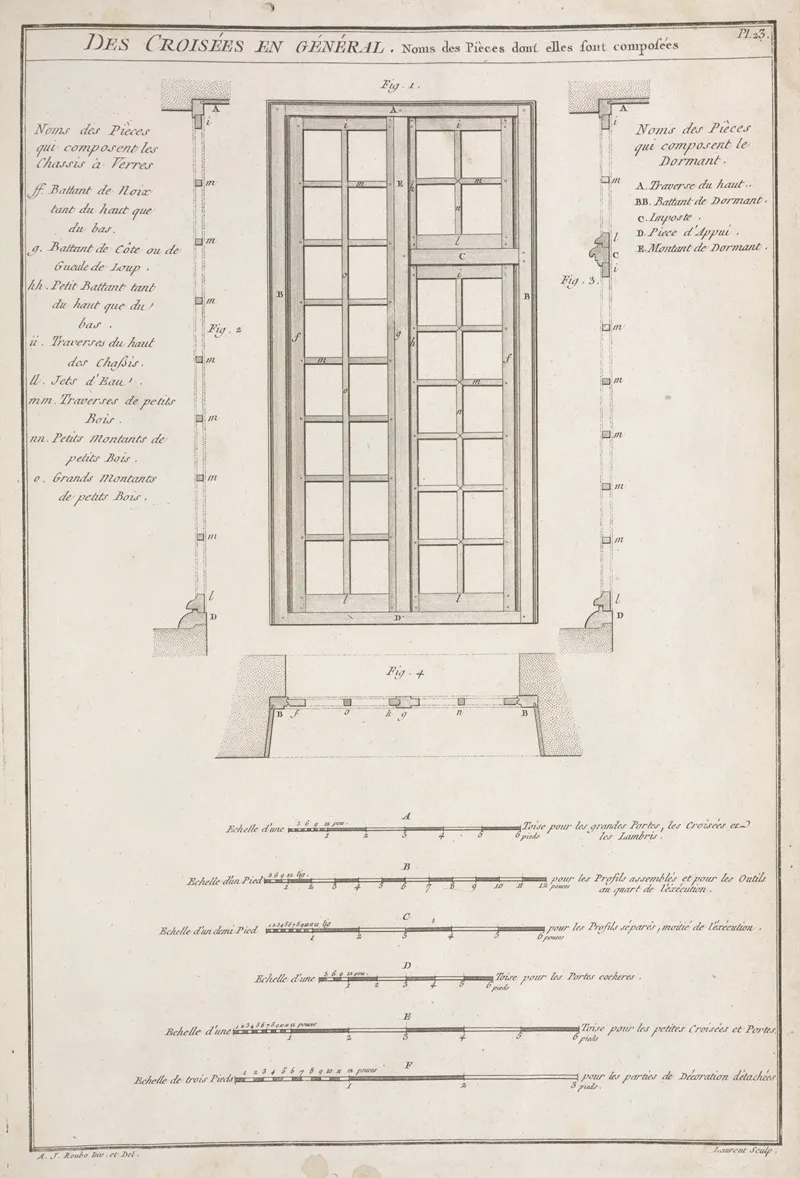 Pl. 23.
DES CROISÉES EN GÉNÉRAL. Noms des Pièces dont elles sont composées
Fig. 1.
Noms des Pièces
qui composent les
Chassis à Verres
ff Battant de Noix
tant du haut que
du bas.
g. Battant de Côte ou de
Gueule de Loup.
hh. Petit Battant tant
du haut que du
bas.
ii. Traverses du haut
des Chassis.
ll. Jets d'Eau.
mm. Traverses de petits
Bois.
nn. Petits Montants de
petits Bois.
o. Grands Montants
de petits Bois.
Fig. 2
A
i
m
m
m
m
m
m
m
l
D
A
i
i
m
m
E
h
n
l
C
B
B
i
o
g
h
f
f
m
m
o
n
l
l
D
Fig. 3.
A
i
m
l
C
i
m
m
m
m
m
l
D
Noms des Pièces
qui composent le
Dormant.
A. Traverse du haut.
BB. Battant de Dormant.
C. Imposte.
D. Piece d'Appui.
E. Montant de Dormant.
Fig. 4
B f o h g n B
A
Echelle d'une Toise pour les grandes Portes, les Croisées et
les Lambris.
3 6 9 12 pou.
1 2 3 4 5 6 pieds
B
Echelle d'un Pied pour les Profils assemblés et pour les Outils
au quart de l'exécution.
3 6 9 12 lig.
1 2 3 4 5 6 7 8 9 10 11 12 pouces
C
Echelle d'un demi Pied pour les Profils séparés, moitié de l'exécution.
1 2 3 4 5 6 7 8 9 10 11 12 lig
1 2 3 4 5 6 pouces
D
Echelle d'une Toise pour les Portes cocheres.
3 6 9 12 pou.
1 2 3 4 5 6 pieds
E
Echelle d'une Toise pour les petites Croisées et Portes.
1 2 3 4 5 6 7 8 9 10 11 12 pouces
1 2 3 4 5 6 pieds
F
Echelle de trois Pieds pour les parties de Décoration détachées
1 2 3 4 5 6 7 8 9 10 11 12 pouces
1 2 3 pieds.
A. J. Roubo Inv. et Del.
Laurent Sculp.